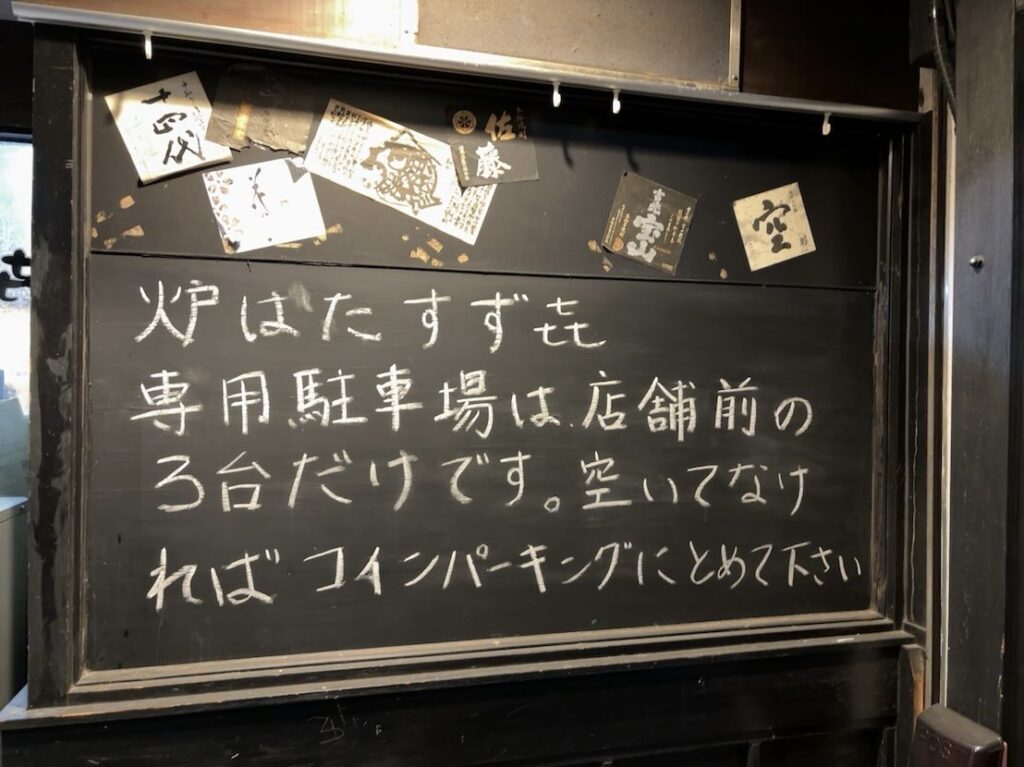 十四代
佐藤
空
炉ばたすず㐂
専用駐車場は店舗前の
3台だけです。空いてなけ
ればコインパーキングにとめて下さい